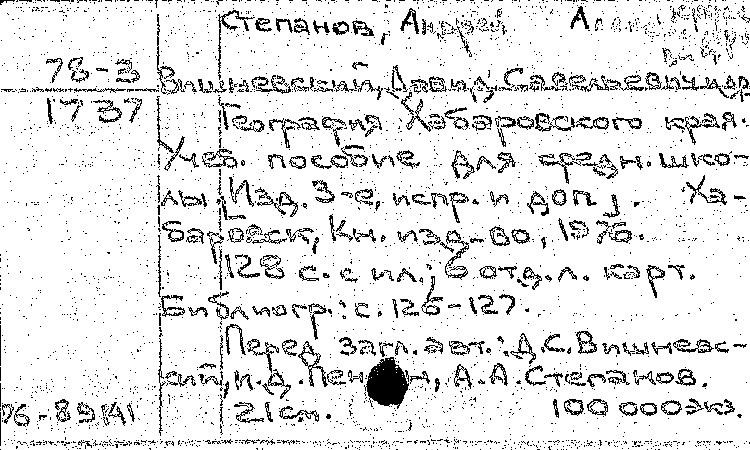 Степанов, Андрей А
78-3 Вишневский, Давид Савельевич и др
1737 География Хабаровского края.
Учеб. пособие для средн. шко-
лы. [Изд. 3-е, испр. и доп]. Ха-
баровск, Кн. изд-во, 1976.
128 с. с ил.; 6 отд. л. карт.
Библиогр.: с. 126-127.
Перед загл. авт.: Д.С. Вишневс-
кий, А.А. Степанов.
21 см. 100 000 экз.